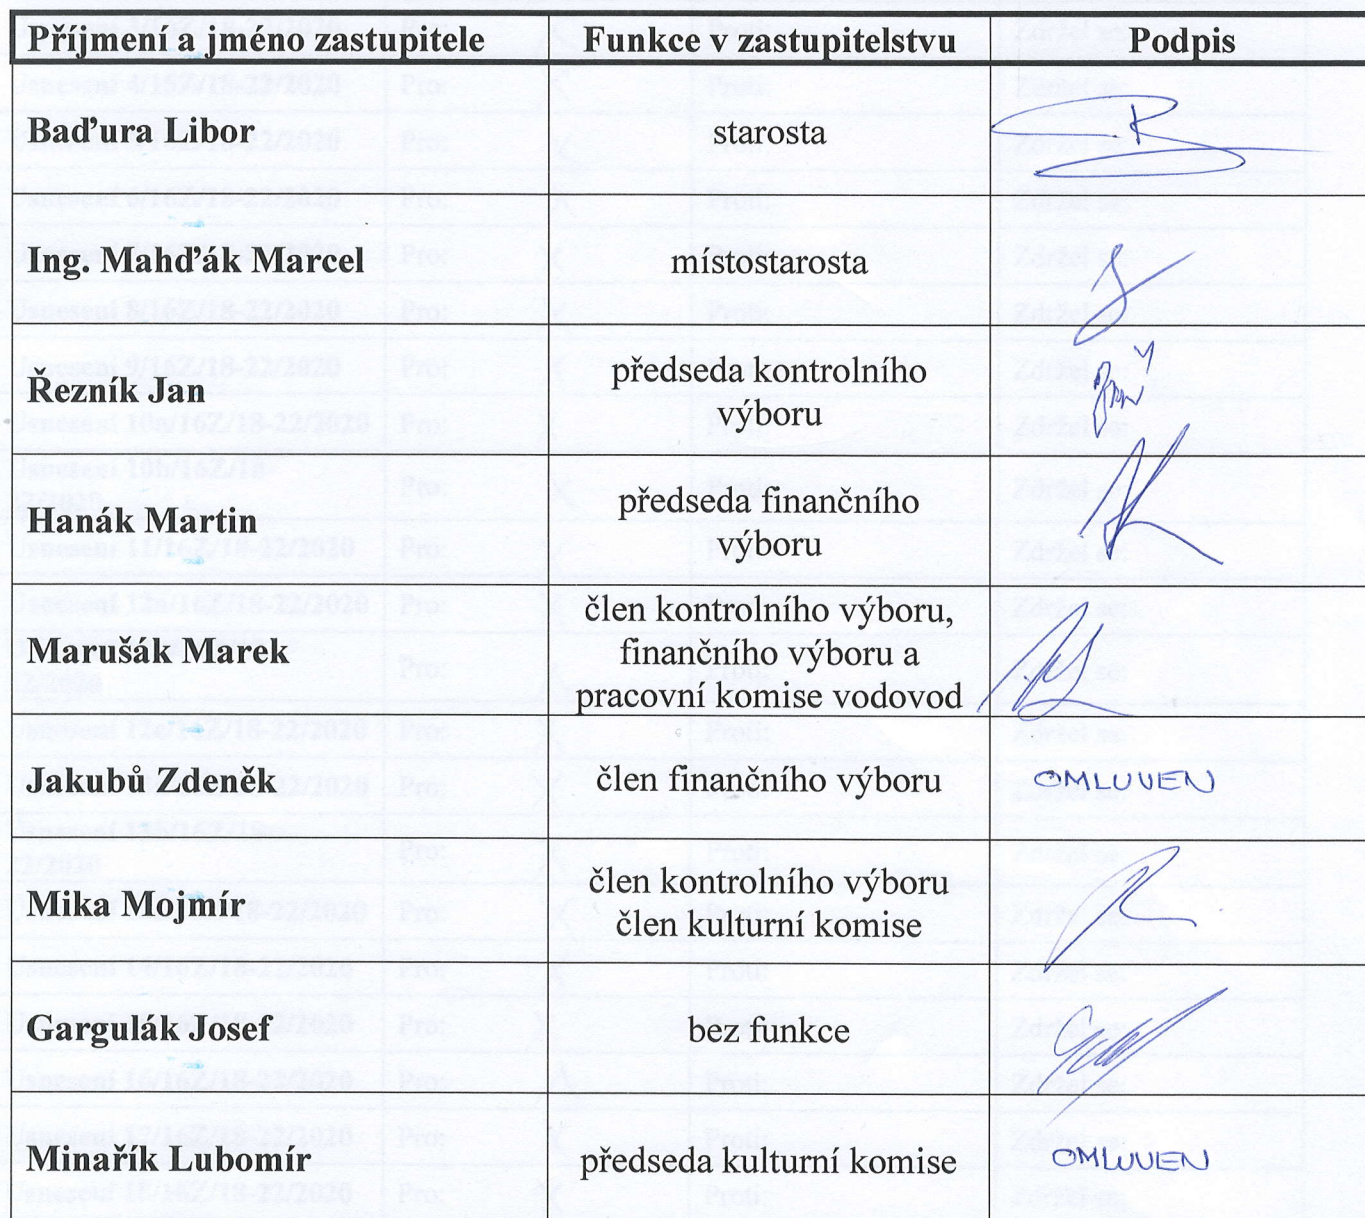 Příjmení a jméno zastupitele Funkce v zastupitelstvu Podpis
Baďura Libor starosta
Ing. Mahďák Marcel místostarosta
Řezník Jan předseda kontrolního
výboru
Hanák Martin předseda finančního
výboru
Marušák Marek člen kontrolního výboru,
finančního výboru a
pracovní komise vodovod
Jakubů Zdeněk člen finančního výboru OMLUVEN
Mika Mojmír člen kontrolního výboru
člen kulturní komise
Gargulák Josef bez funkce
Minařík Lubomír předseda kulturní komise OMLUVEN